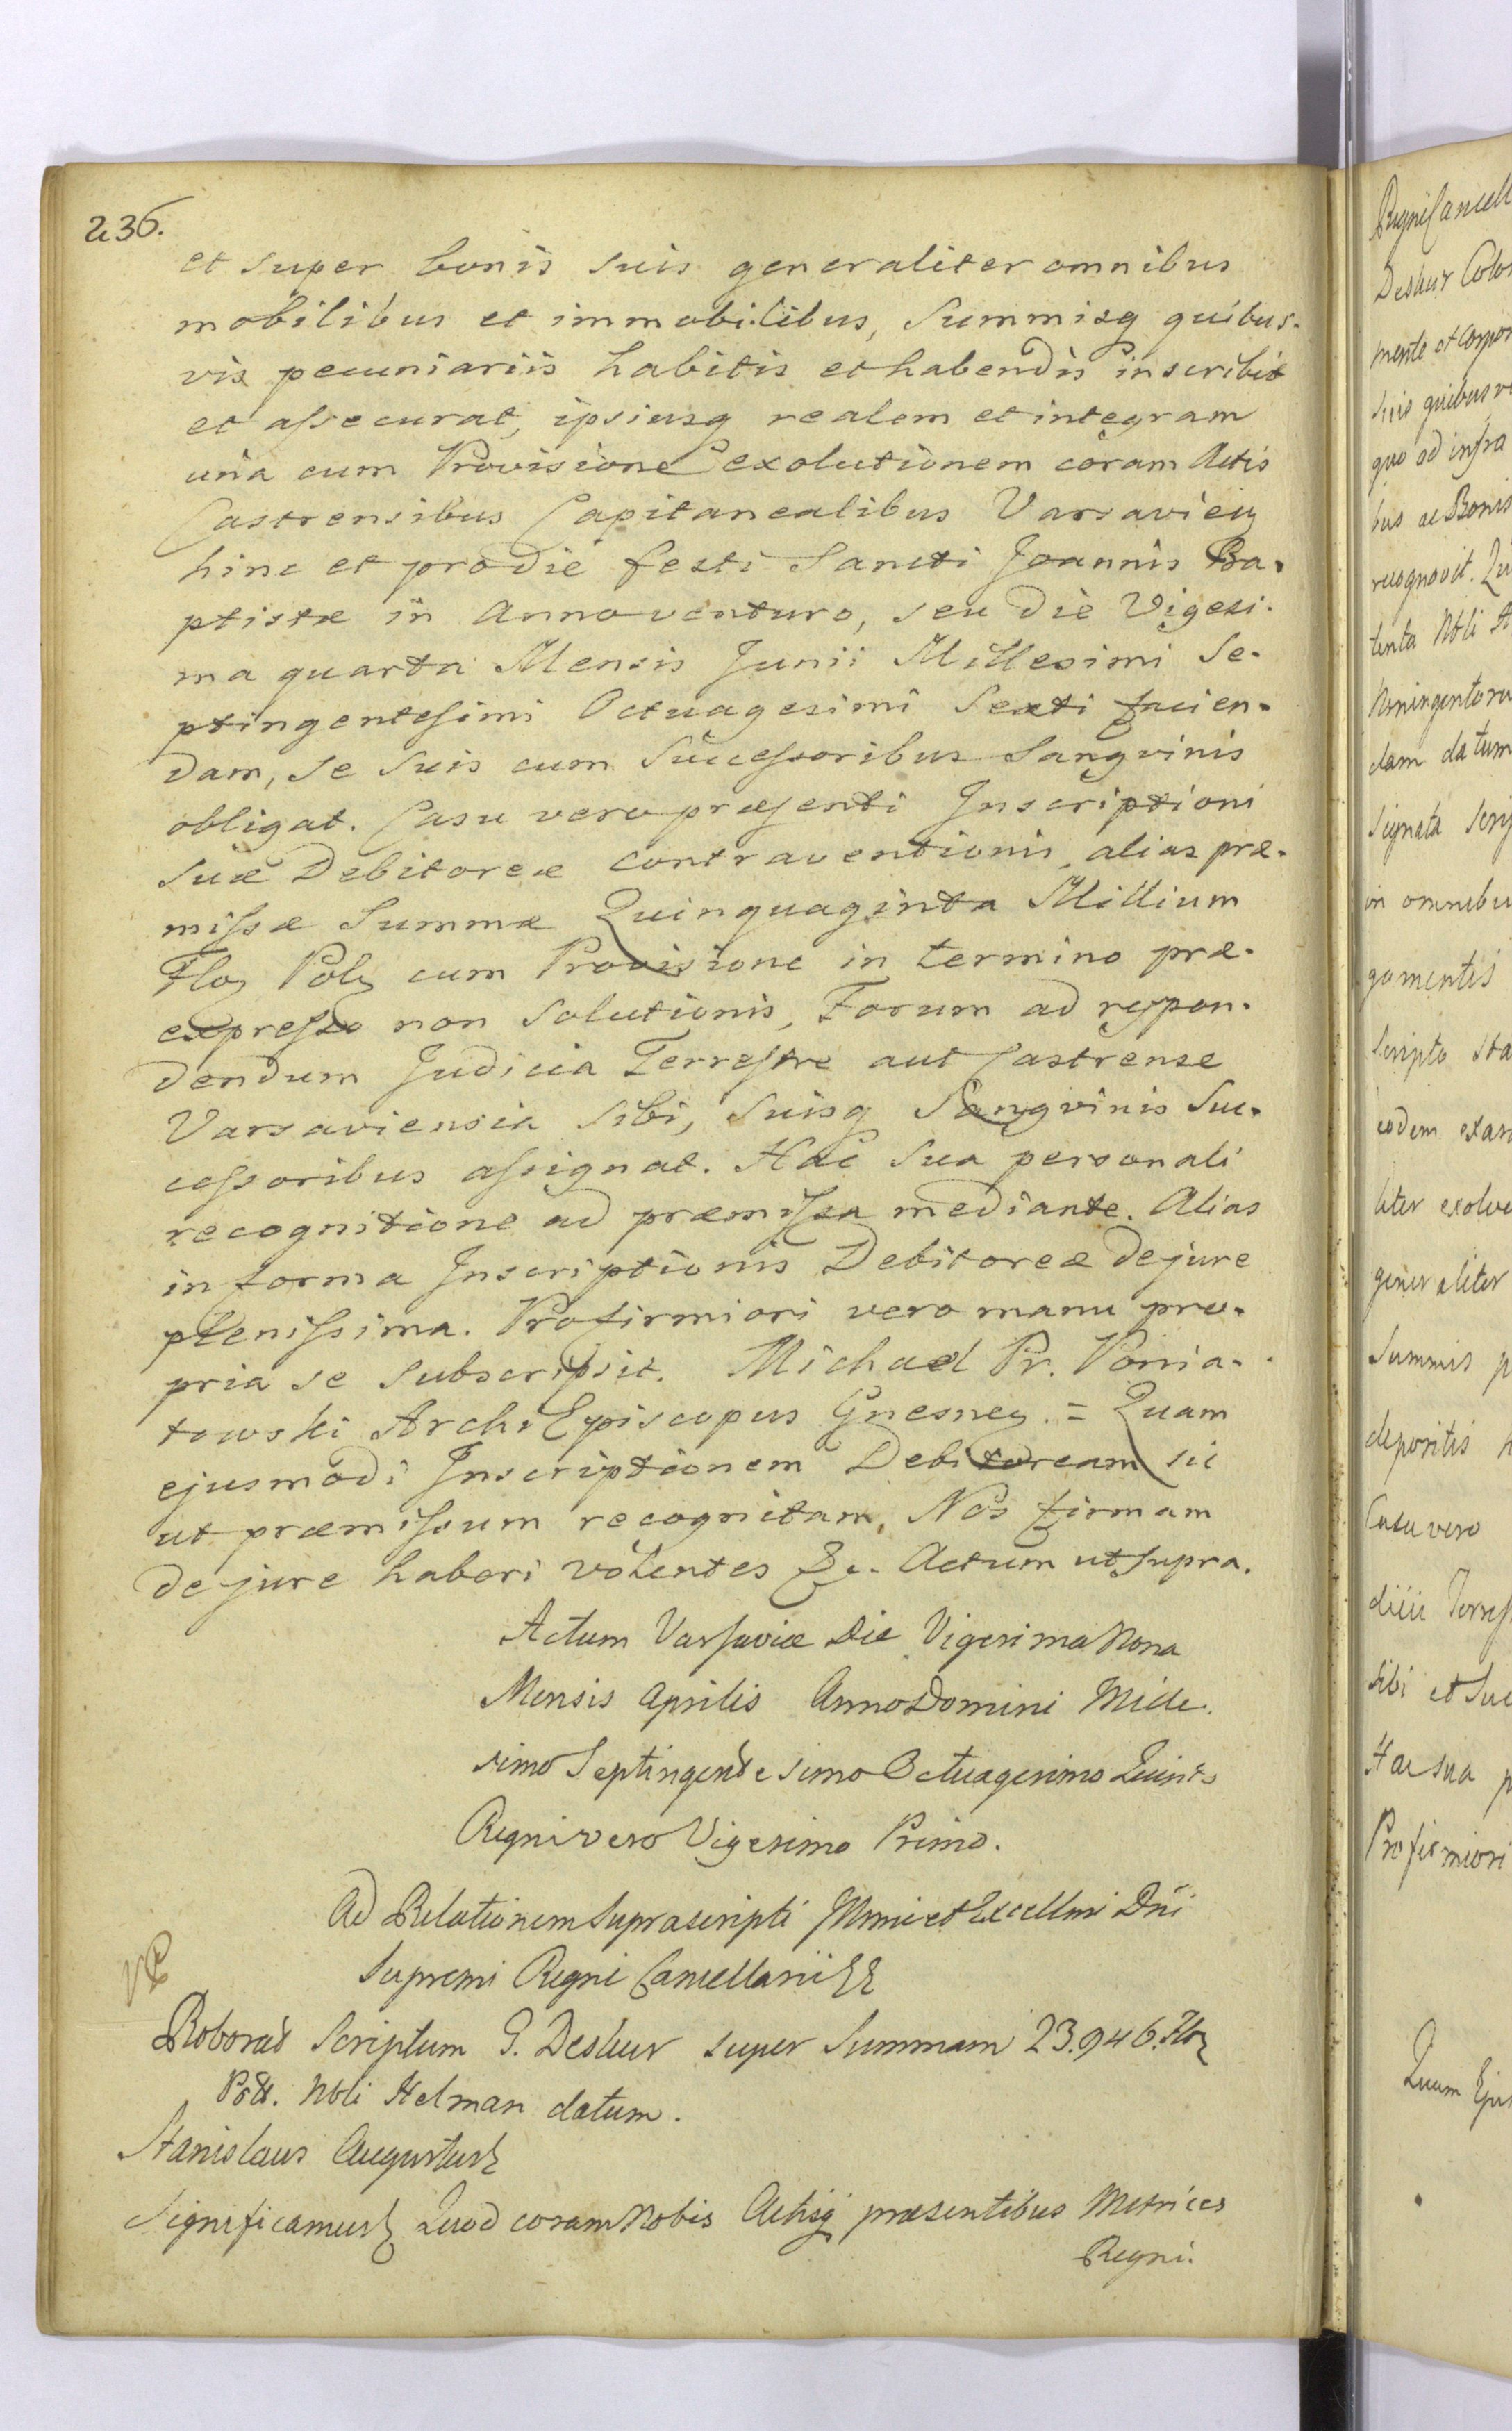 236.
et super bonis suis generaliter omnibus
mobilibus et immobilibus, Summisq quibus-
vis pecuniariis habitis et habendis inscribit
et assecurat, ipsiusq realem et integram
una cum Provisione exolutionem coram Actis
Castrensibus Capitanealibus Varsavien
hinc et pro die festi Sancti Joannis Ba-
ptistæ in Anno venturo, seu die Vigesi-
ma quarta Mensis Junii Millesimi Se-
ptingentesimi Octuagesimi Sexti facien-
dam, se suis cum Successoribus Sangvinis
obligat. Casu vero præsenti Inscriptioni
suæ Debitoreæ contraventionis, alias præ-
missæ Summæ Quinquaginta Millium
Flo Pol cum Provisione in termino præ-
expresso non Solutionis, Forum ad respon-
dendum Judicia Terrestre aut Castrense
Varsaviensia sibi, Suisq Sangvinis Suc-
cessoribus assignat. Hac Sua personali
recognitione ad præmissa mediante. Alias
in forma Inscriptionis Debitoreæ de jure
plenissima. Pro firmiori vero manu pro-
pria se subscripsit. Michael Pr. Ponia-
towski ArchiEpiscopus Gnesnen. = Quam
ejusmodi Inscriptionem Debitoream sic
ut præmissum recognitam, Nos firmam
de jure haberi volentes &c. Actum ut supra.
Actum Varsaviæ Die Vigesima Nona
Mensis Aprilis Anno Domini Mille-
simo Septingentesimo Octuagesimo Quinto
Regni vero Vigesimo Primo.
Ad Relationem suprascripti Illmi et Excellmi Dñi
Supremi Regni Cancellarii
Roborat Scriptum G. Deshur super Summam 23.946. Flo
Poll. Nbli Helman datum.
Stanislaus Augustus
Significamus Quod coram Nobis Actisq præsentibus Metrices
Regni.
Regni Cancell
Deshur Colo
mente et corpor
suis quibusv
quo ad infra
bus ac Bonis
recognovit. Qu
tenta Nbli H
Noningentoru
dam datum
signata Scrip
in omnibu
gamentis
Scripto sta
eodem exar
liter exolve
generaliter
Summis p
depositis h
Casu vero
dicii Terres
sibi et Suc
Hac sua p
Pro firmiori
Quam Ejus